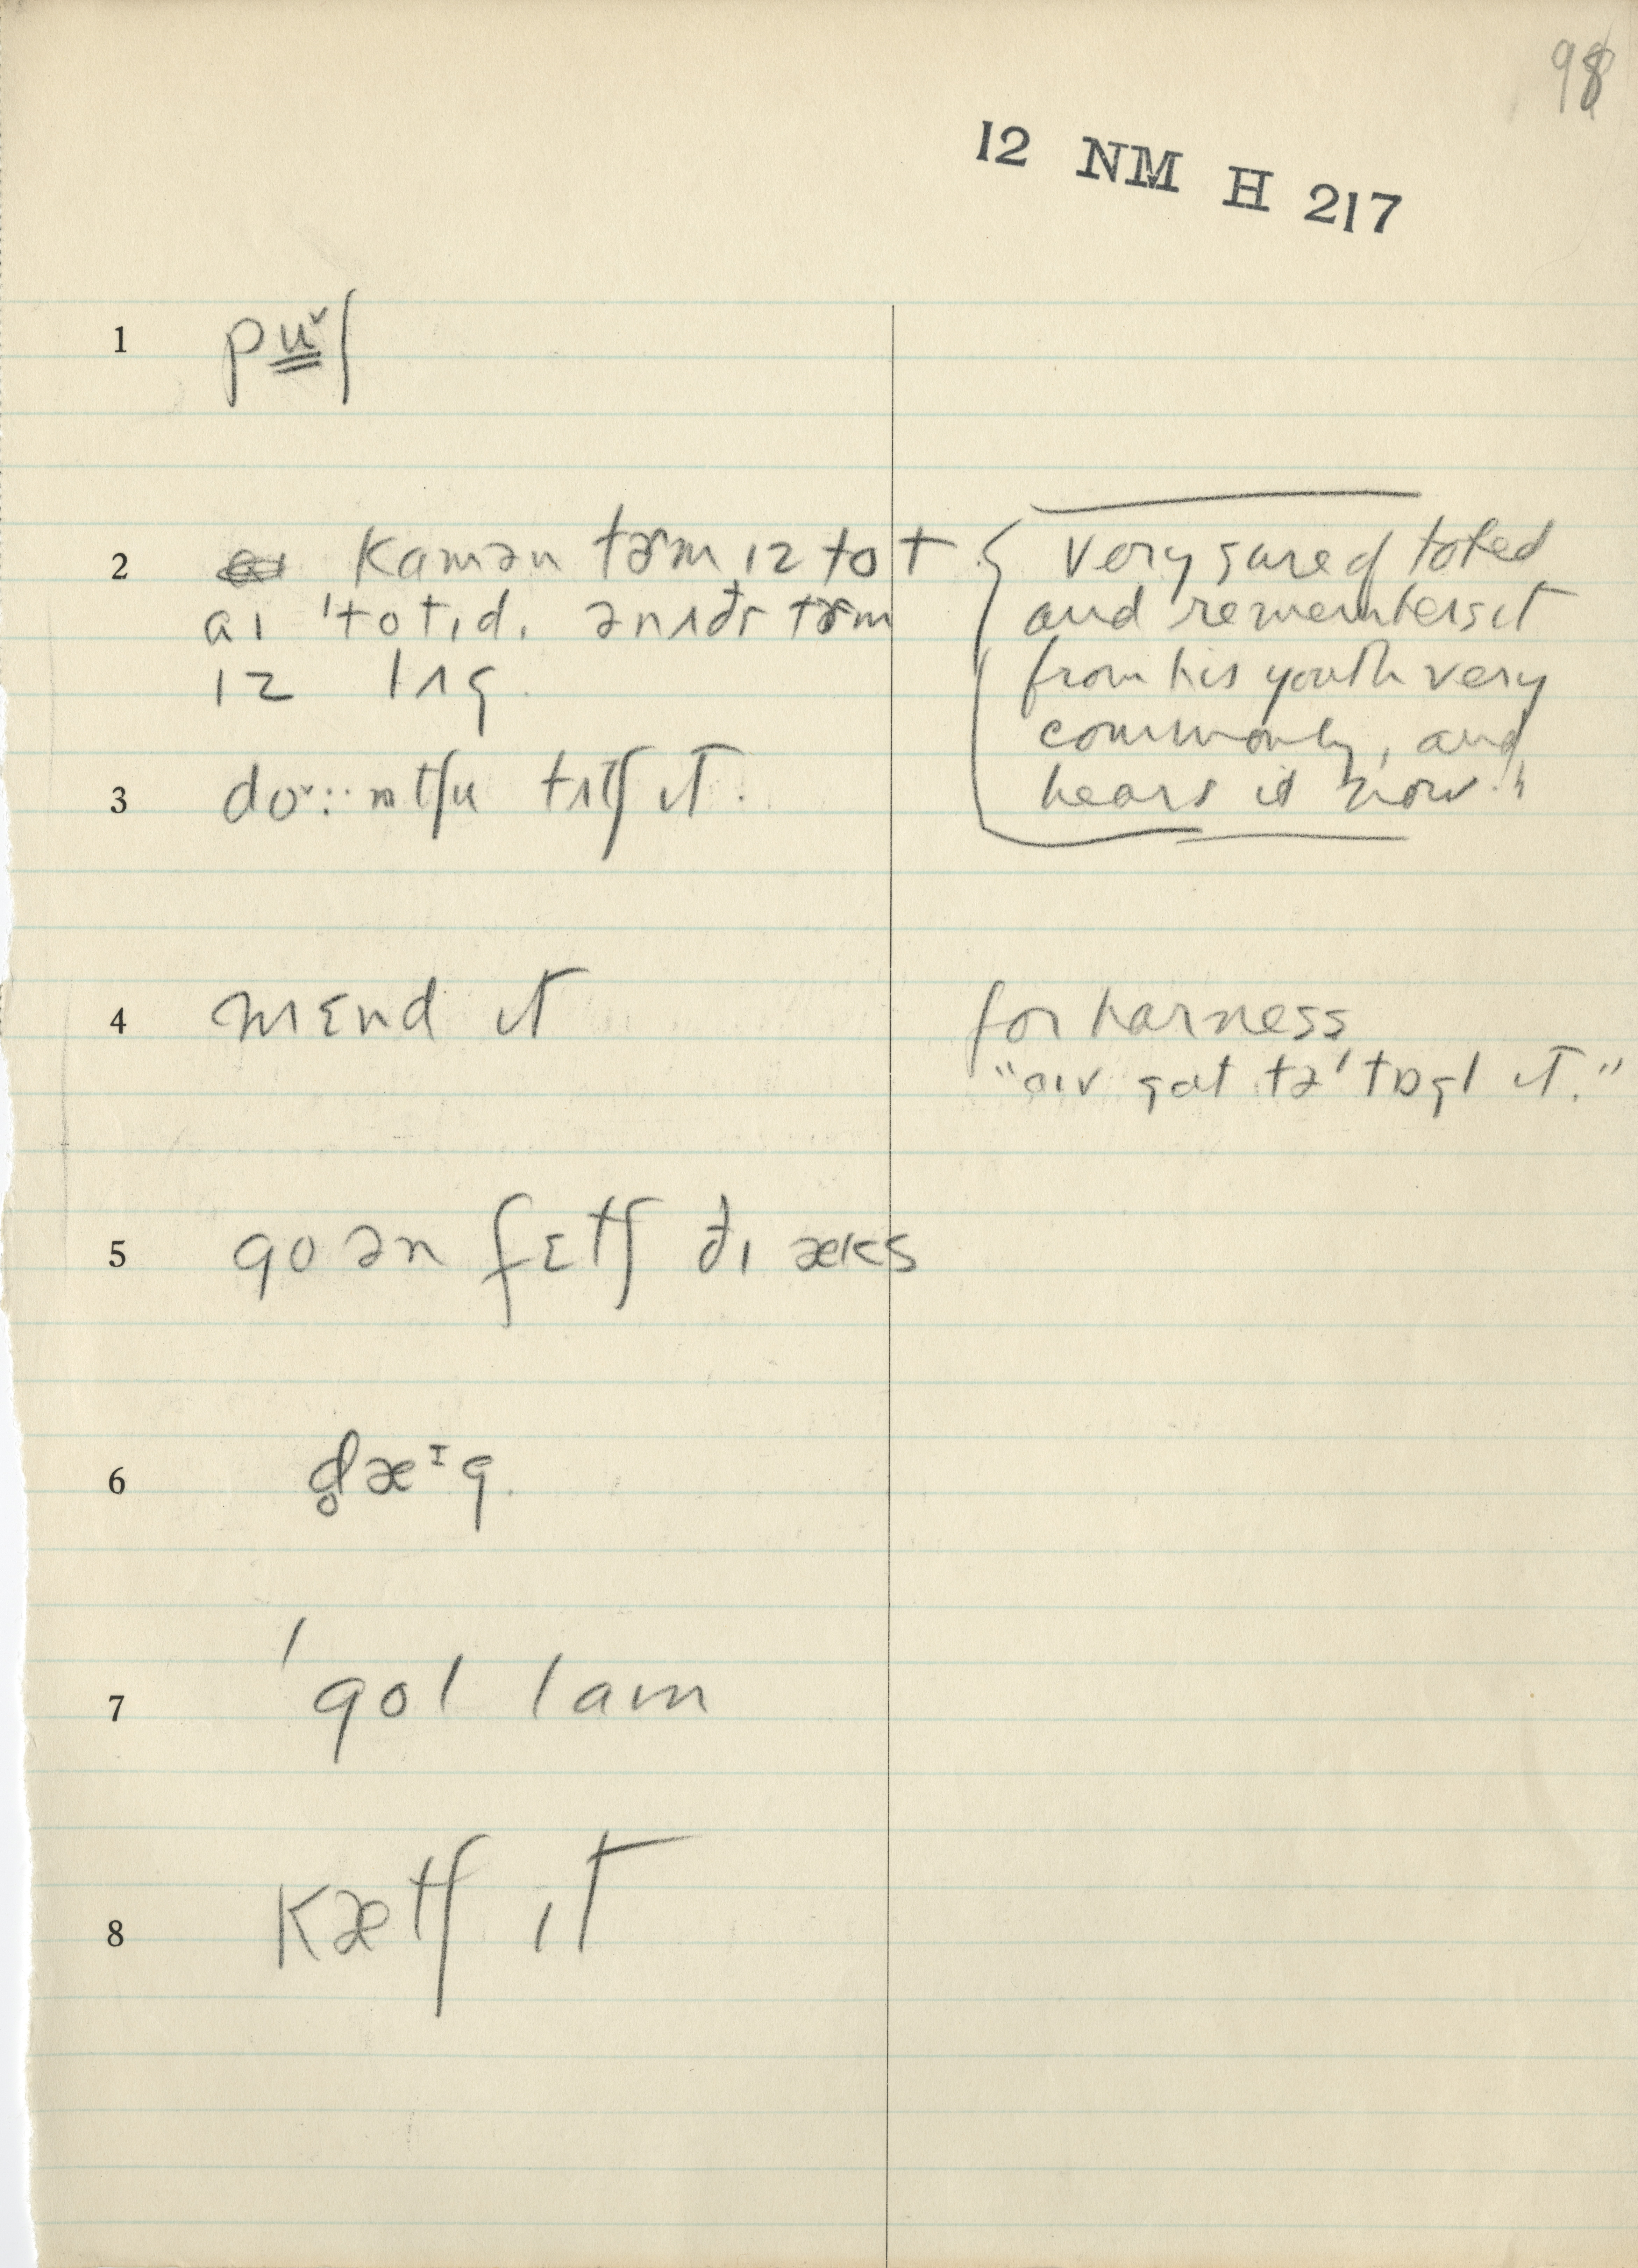 98
12 NM H 217
1 pu̳ˇʃ
2 kamən tɚm ɪz tot
aɪ 'totɪd. ənʌðɚ tɚm
ɪz lʌg.
very sure of toted
and remembers it
from his youth very
commonly, and
hears it now."
3 doˇ::ntʃu tʌtʃ ɪt.
4 mɛnd ɪt
for harness
"aɪv gat tə 'tɒgl ɪt."
5 go ən fɛtʃ ðɪ æks
6 d̥æᶦg.
7 'gol lam
8 kætʃ ɪt